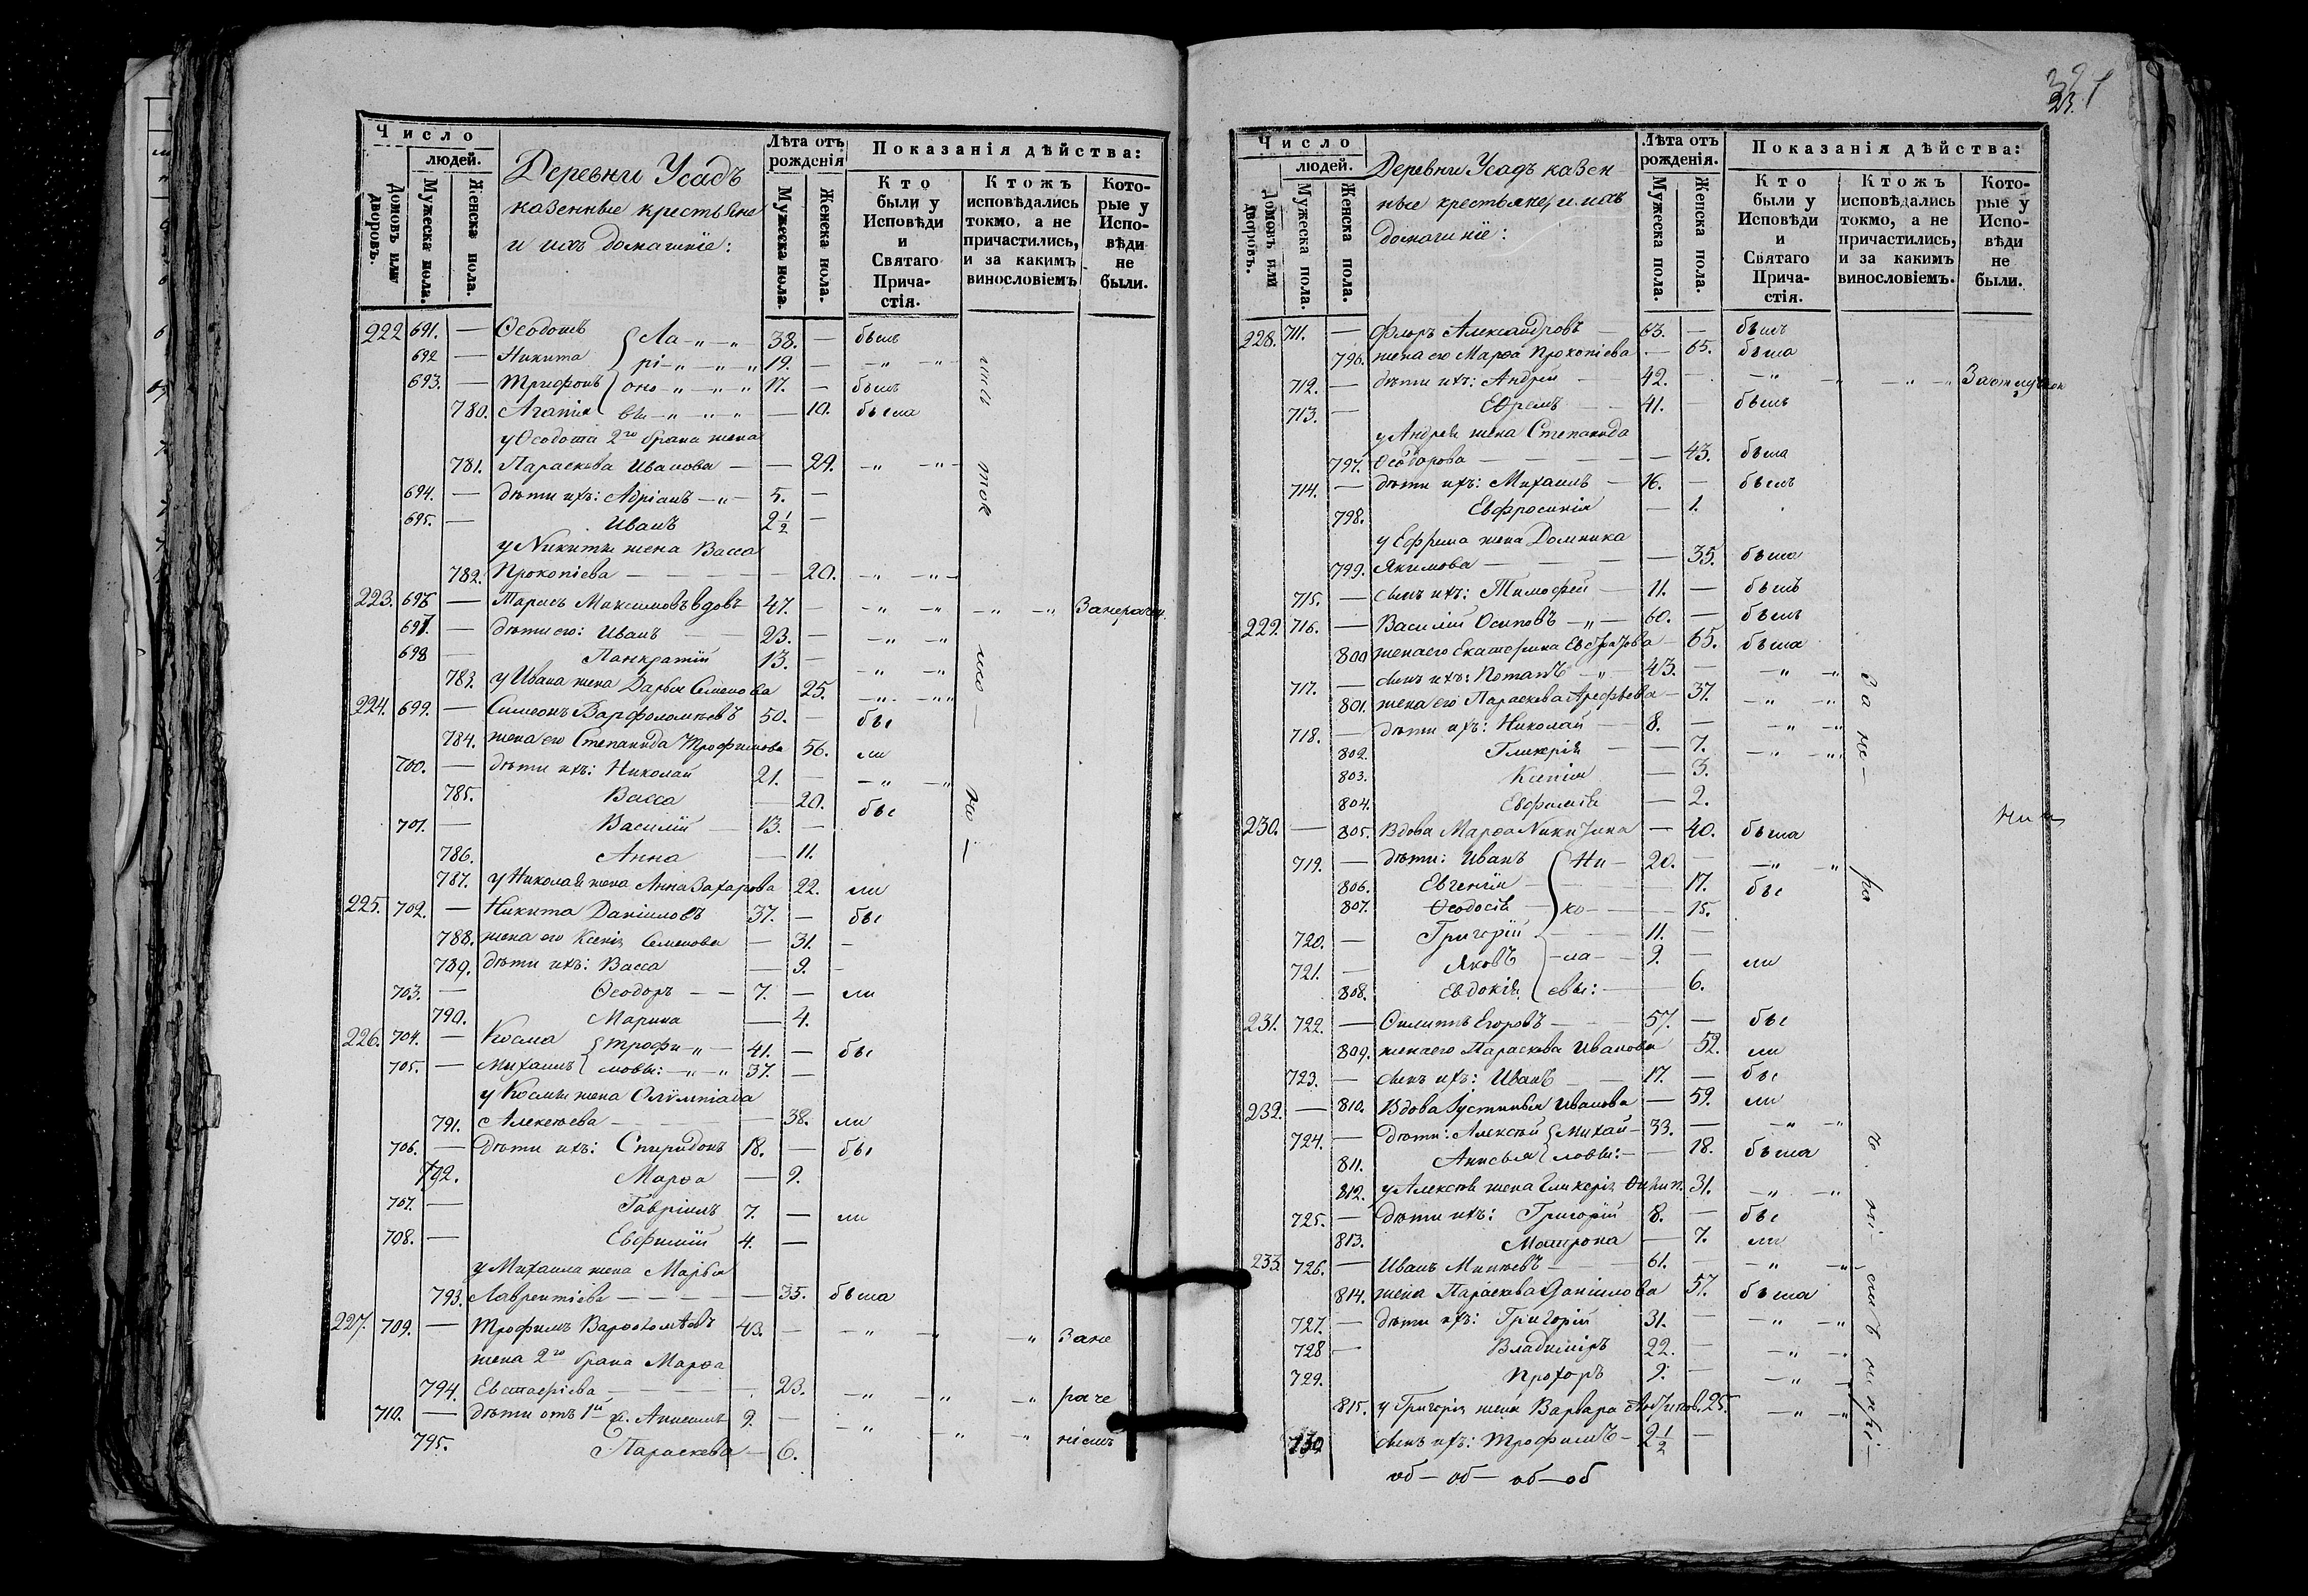 Число
людей.
Домовъ или дворовъ.
Мужеска пола.
Женска пола.
Деревни Усадъ
казенные крестьяне
и ихъ домашніе:
Лѣта отъ рожденія
Мужеска пола.
Женска пола.
Показанія дѣйства:
Кто были у Исповѣди и Святаго Прича-стія.
Ктожъ исповѣдались токмо, а не причастились, и за какимъ винословіемъ
Кото-рые у Испо-вѣди не были.
222 691. — Ѳеодотъ { Ла-"-" 38. — былъ
692 — Никита рі-"-"-" 19. — -" -"
693. — Трифонъ оно-"-"-" 17. — былъ
780. Агапія вы-"-"-" — 10. была
у Ѳеодота 2го брака жена
781. Параскева Иванова — — 29. -" -"-
694. — дѣти ихъ: Адріанъ -"- 5. —
695. — Иванъ 2 1/2 —
у Никиты жена Васса
782. Прокопіева — — — — 20. -" -"-
223. 696 — Тарасъ Максимовъ вдовъ 47. — -" -" -" -"
697. — дѣти его: Иванъ — 23. — -" -"
698 — Панкратій 13. — -" -"
783. у Ивана жена Дарья Семенова 25. -" -"
224. 699. — Симеонъ Варфоломѣевъ 50. — бы
784. жена его Степанида Трофимова 56. ли
700. — дѣти ихъ: Николай 21. — -" -"
785. Васса — 20. бы
701. — Василій — 13. —
786. Анна — 11.
787. у Николая жена Анна Захарова 22. ли
225. 702. — Никита Даніиловъ 37. — бы
788. жена его Ксенія Семенова — 31. -
789. дѣти ихъ: Васса — 9. -
703. — Ѳеодоръ — — 7. — ли
790. Марина — 4.
226. 704. — Косма { Трофи-"- 41. — бы
705. — Михаилъ { мовы: -"-" 37. —
у Космы жена Олимпіада
791. Алексѣева — — — 38. ли
706. — Дѣти ихъ: Спиридонъ 18. — бы
792. Марѳа — 9.
707. — Гавріилъ 7. — ли
708. — Евѳимій 4. —
у Михаила жена Марья
793. Лаврентіева — — — — 35. была
227. 709. — Трофимъ Варѳоломѣевъ 43. — -" -" -" Зане
жена 2го брака Марѳа
794. Евстаѳіева — — — — 23. -" -" -" раче
710. — дѣти отъ 1й ж. 9. — -" -" -" ніемъ
795. Параскева — 6.
Число
людей.
Домовъ или дворовъ.
Мужеска пола.
Женска пола.
Деревни Усадъ казен
ные крестьяне, и ихъ
домашніе:
Лѣта отъ рожденія.
Мужеска пола.
Женска пола.
Показанія дѣйства:
Кто были у Исповѣди и Святаго Прича-стія.
Ктожъ исповѣдались токмо, а не причастились, и за какимъ винословіемъ.
Кото-рые у Испо-вѣди не были.
23.
228. 711. — Флоръ Александровъ — 63. — былъ
796. жена его Марѳа Прокопіева — 65. была
712. — дѣти ихъ: Андрей — 42. - -" -" -" -" За отлучкою
713. — Ефремъ — 41. — былъ
у Андрея жена Степанида
797. Ѳеодорова — — — — 43. была
714. — дѣти ихъ: Михаилъ — 16. — былъ
798. Евфросинія — 1.
у Ефрема жена Домника
799. Якимова — — — 35. была
715. — сынъ ихъ: Тимоѳей — 11. — былъ
229. 716. — Василій Осиповъ -"- 60. — былъ
800 жена его Екатерина — 65. была
717. — сынъ ихъ: Потапъ -"- 43. — -" -"
801. жена его Параскева Арефьева — 37. -" -"
718. — дѣти ихъ: Николай — 8. — -" -"
802. Гликерія — — 7. -" -"
803. Ксенія — 3.
804. Евфимія — 2.
230. — 805. Вдова Марѳа Никитина — 40. была
719. — дѣти: Иванъ { Ни- 20. — -" "
806. Евгенія — — 17. бы
807. Ѳеодосія — ко- — 15.
720. — Григорій — 11. —
721. — Яковъ -ла- 9. — ли
808. Евдокія евы: — 6.
231. 722. — Филиппъ Егоровъ — 57. — бы
809. жена его Параскева Иванова 52. ли
723. — сынъ ихъ: Иванъ — 17. — бы
232. — 810. Вдова Іустинья Иванова — 59. ли
724. — Дѣти: Алексѣй { Михай- 33. — -" -"
811. Анисья { ловы: - — 18. была
812. у Алексѣя жена Гликерія 31. -" -"
725. — дѣти ихъ: Григорій 8. — бы
813. Матрона — 7. ли
233. 726. — Иванъ Минѣевъ — 61. — -" -"
814. жена Параскева Даніилова 57. была
727. — дѣти ихъ: Григорій 31. — -" -"
728 — Владиміръ 22. — -" -"
729. Прохоръ 9. — -" -
815. у Григорія жена Варвара 25. -" -"
730 сынъ ихъ: Трофимъ — 2 1/2 —
об — об — об — об